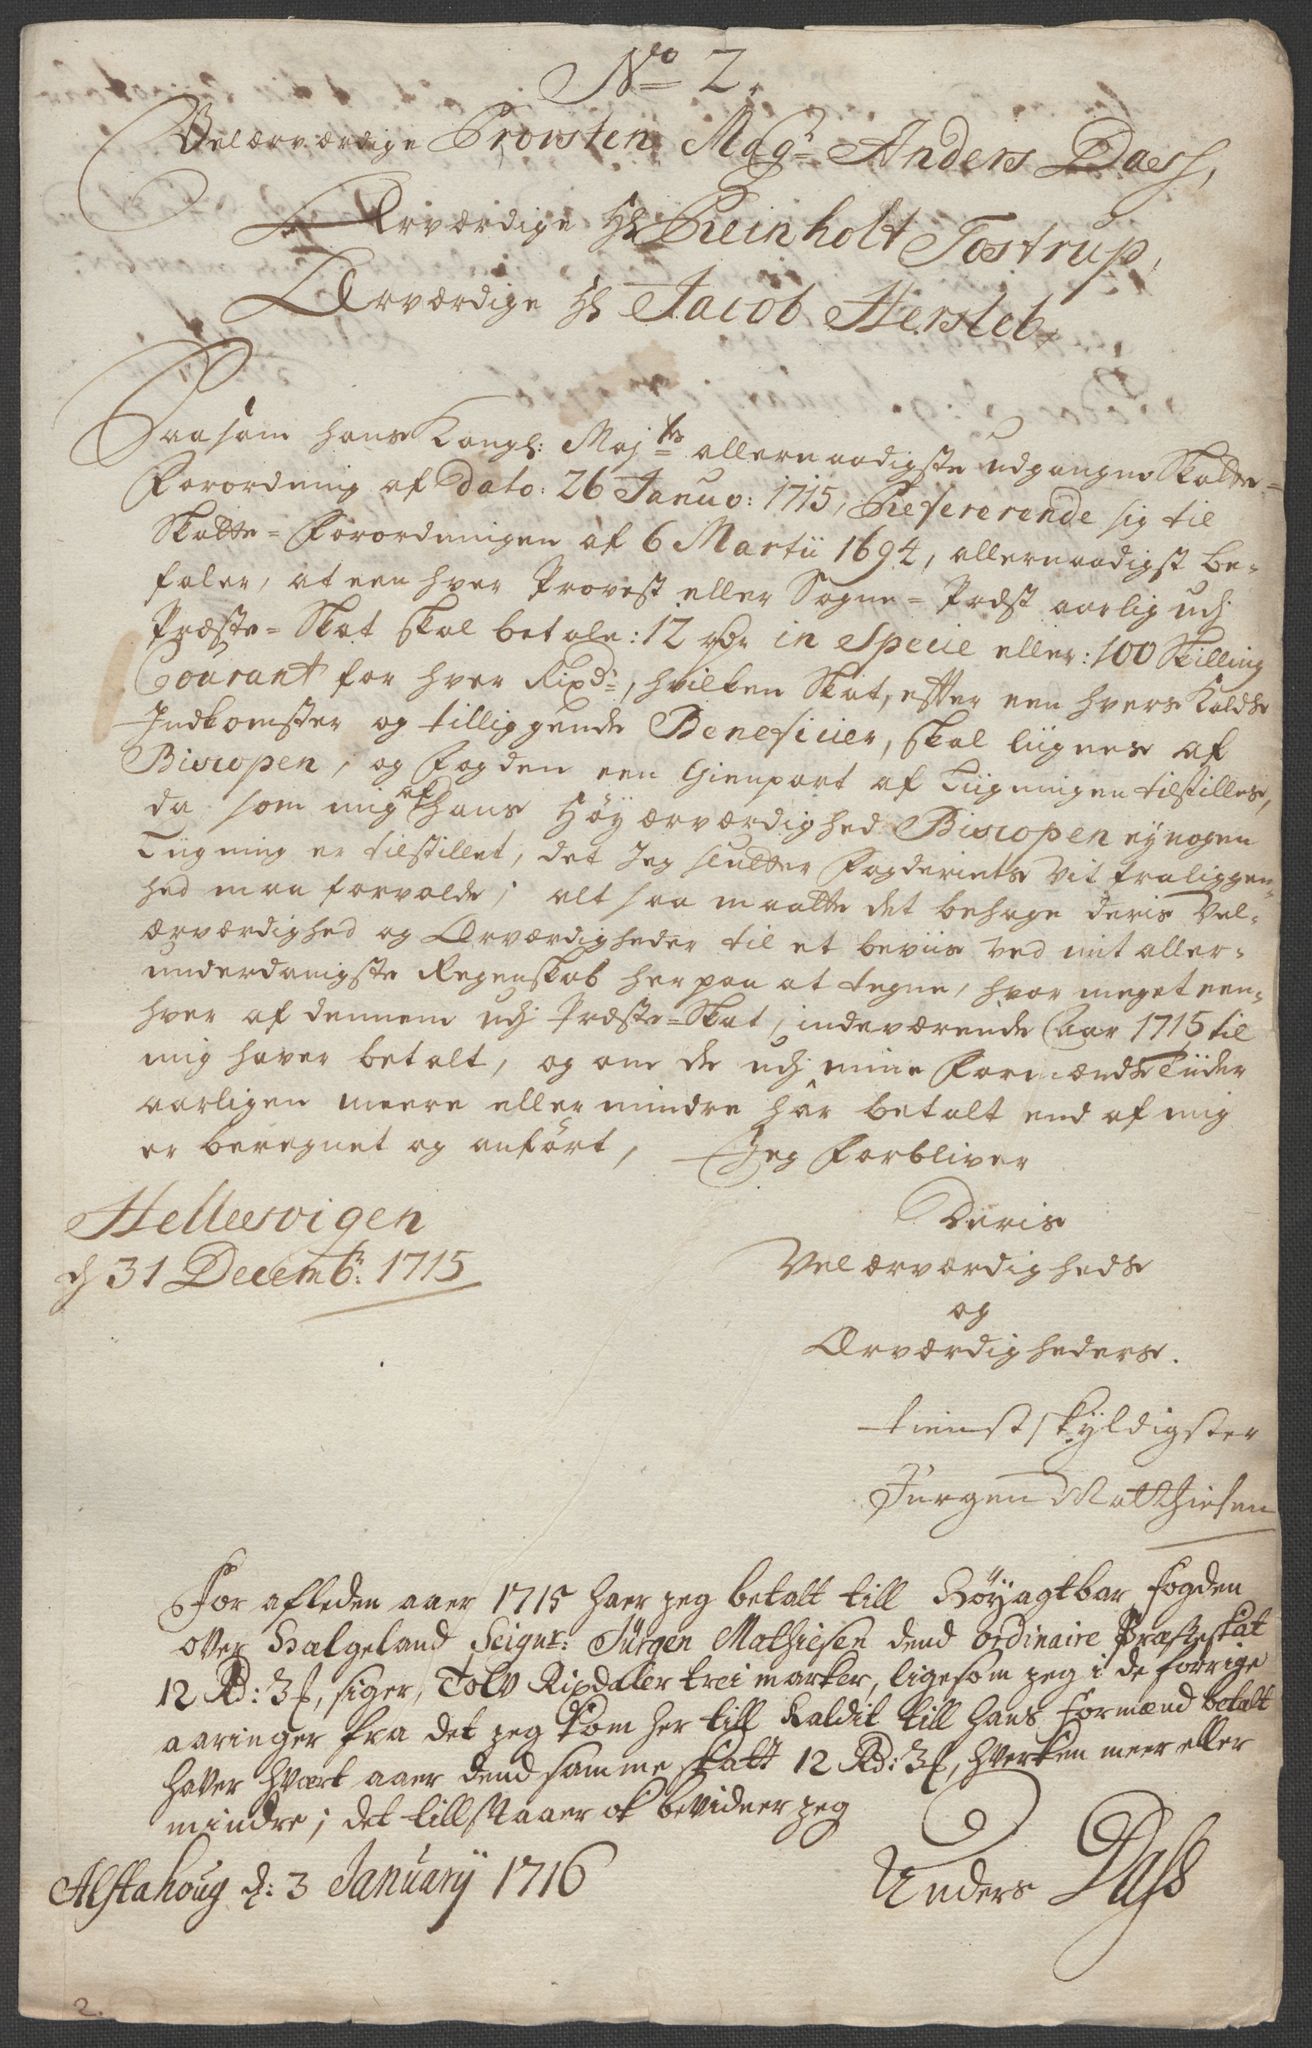 No 2.
Velærværdige Provsten Magr Anders Dass,
Ærværdige Hr Reinholt Tostrup,
Ærværdige Hr Jacob Hersleb,
Saasom hans Kongl: Majts allernaadigste udgangne Skatte-
Forordning af dato: 26 Januo: 1715, Refererende sig til
Skatte-Forordningen af 6 Martii 1694, allernaadigst be-
faler, at een hver Provst eller Sogne-Præst aarlig udj
Præste-Skat skal betale: 12 rdr in Specie eller: 100 Skilling
Courant for hver Rixdr, hvilken Skat, efter een hvers Kalds
Indkomster og tilliggende Beneficier, skal liignes af
Biscopen, og Fogden een Gienpart af Liigningen tilstilles,
da som mig af hans Høyærværdighed Biscopen eynogen
Liigning er tilstillet, det Jeg slutter Fogderiets Vit fraliggen-
hed maa forvolde; alt saa maatte det behage deris Vel-
ærværdighed og Ærværdigheder til et beviis ved mit aller-
underdanigste Regenskab her paa at tegne, hvor meget een-
hver af dennem udj Præste-Skat, indeværende Aar 1715 til
mig haver betalt, og om de udj mine Formænds Tiider
aarligen meere eller mindre hâr betalt end af mig
er beregnet og anført, Jeg Forbliver
Hellesvigen
d 31 Decembr: 1715
Deris
Velærværdigheds
og
Ærværdigheders.
tienstskyldigster
Jurgen Matthiesen
For afleden aaer 1715 haer jeg betalt till Høyagtbar fogden
over Halgeland Seignr: Jürgen Mathiesen dend ordinaire Præsteskat
12 Rd: 3 ƒ, siger, Tolv Rixdaler trei marker, ligesom jeg i de forrige
aaringer fra det jeg kom her till Kaldit till hans formænd betalt
haver hvært aaer dend samme skatt 12 Rd: 3 ƒ, hverken meer eller
mindre; det tillstaaer ok bevidner jeg
Alstahoug d: 3 Januarij 1716
Anders Dass
2.